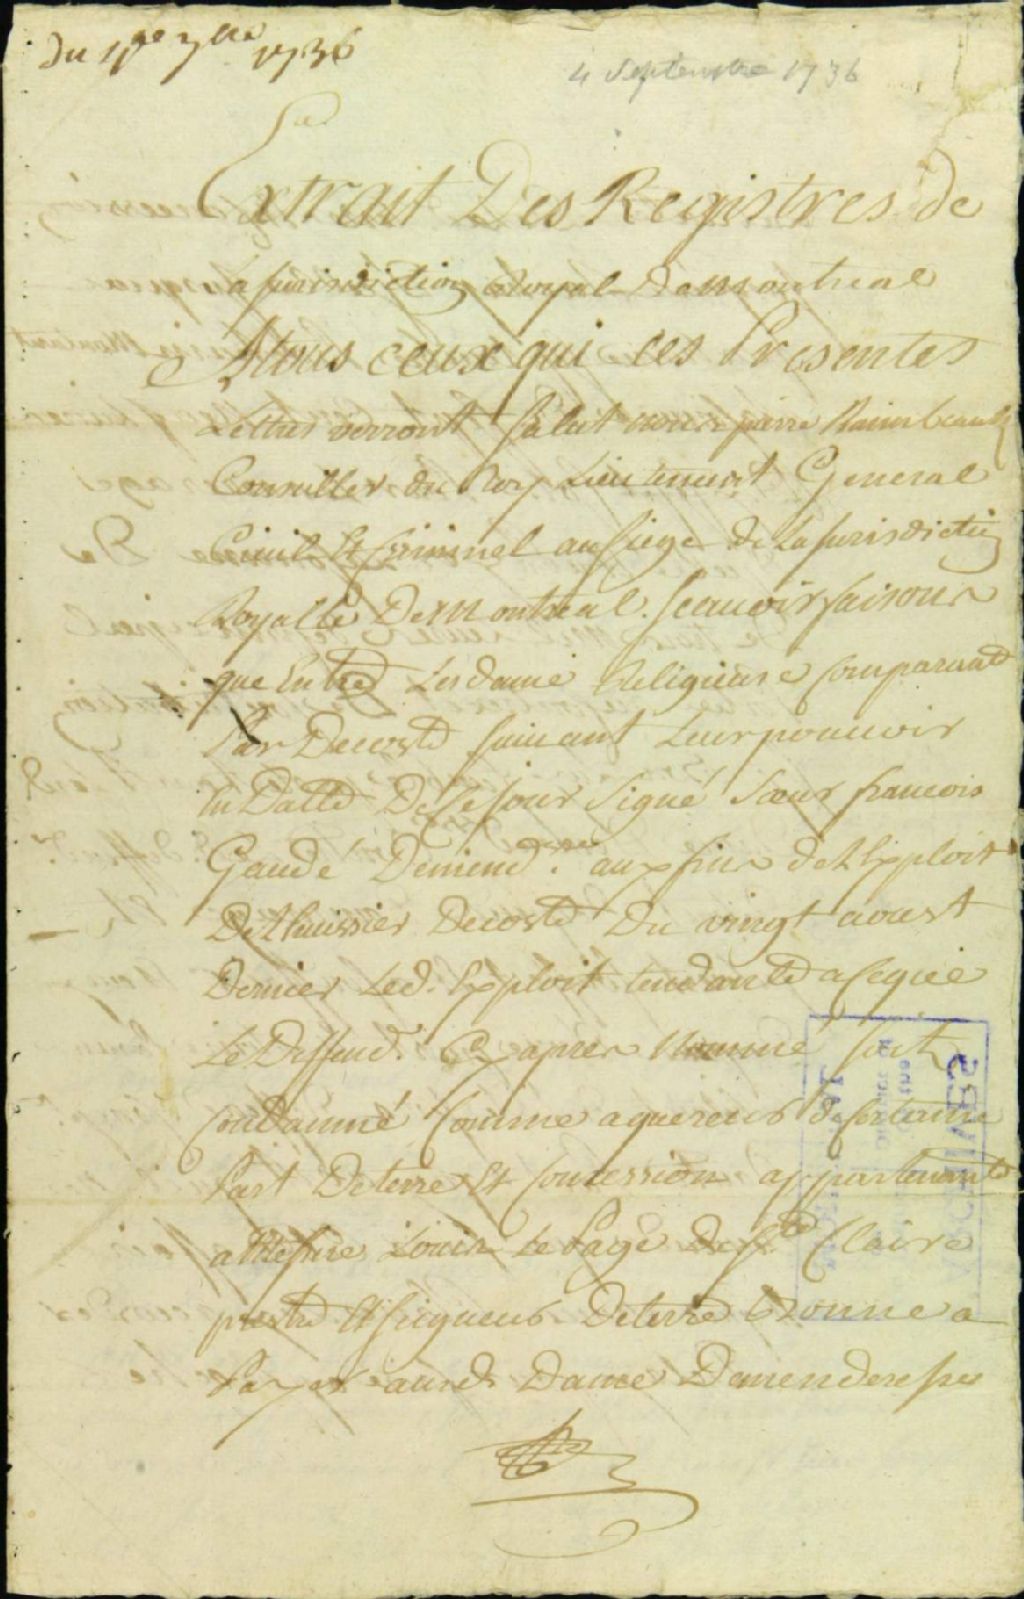 Du 4e 7bre 1736
4 Septembre 1736
Extrait Des Registres de
la Jurisdiction Royal de Montreal
A tous ceux qui ces Presentes
Lettres verront Salut nous pierre Raimbeault
Conseiller du Roy Lieutenant General
Civil Et Criminel au siege de La Jurisdiction
Royalle De Montreal scauoir faisons
que Entre Les dame Religieuse comparante
Par Decoste suiuant Leur pouuoir
En Datte De Ce jour Signé Sœur francois
Gaudé Demend.sse aux fins de L'Exploit
De L'huissier Decoste Du vingt aoust
Dernier Led. Exploit tendante a Ceque
Le Deffend. Cy apres Nommé soit
condamné Comme aquereur de certaine
Part De terre Et Concession appartenante
a Messire Louis Le Page de Ste Claire
prestre Et seigneur De terre bonne a
Payer aud. Dame Demenderesse
ARCHIVES